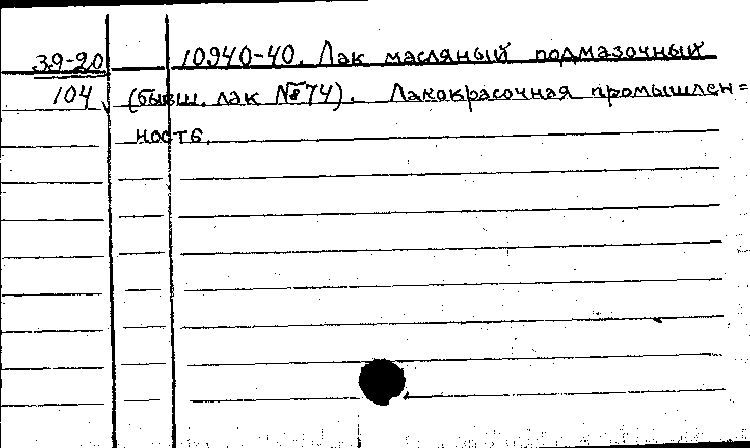 39-20 10940-40. Лак масляный подмазочный
104 (бывш. лак №74). Лакокрасочная промышлен=
ность.